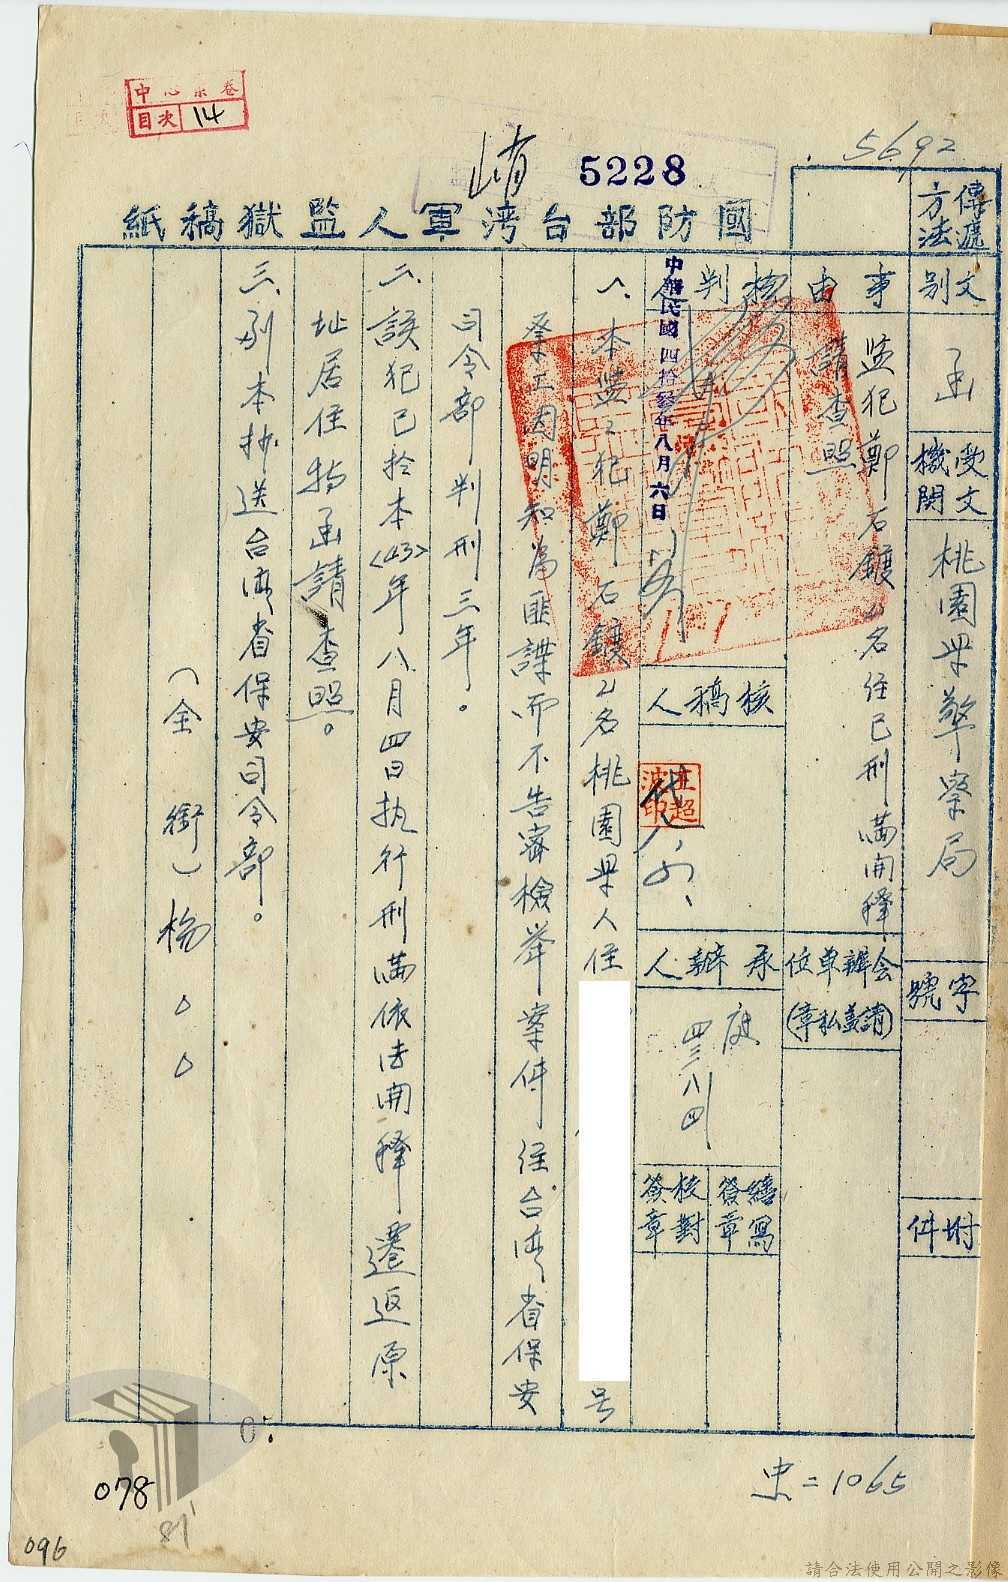 中心案卷
目次 14
5692
5228
國防部台湾軍人監獄稿紙
傳遞方法
文別 函
受文機関 桃園县警察局
字號
附件
事由 監犯鄭石鍍乙名住已刑滿開釋
請查照
会辦單位
(請蓋私章)
核判
中華民國四拾叁年八月六日
核稿人
代
承辦人
四三八四
繕寫簽章
校對簽章
一、本監之犯鄭石鍍乙名桃園县人住
号
泰工因明知為匪諜而不告密檢举案件經台湾省保安
司令部判刑三年。
二、該犯已於本〈43〉年八月四日执行刑滿依法開釋遷返原
址居住特函請查照。
三、副本抄送台湾省保安司令部。
(全銜)楊○○
忠=1065
078
87
096
請合法使用公開之影像